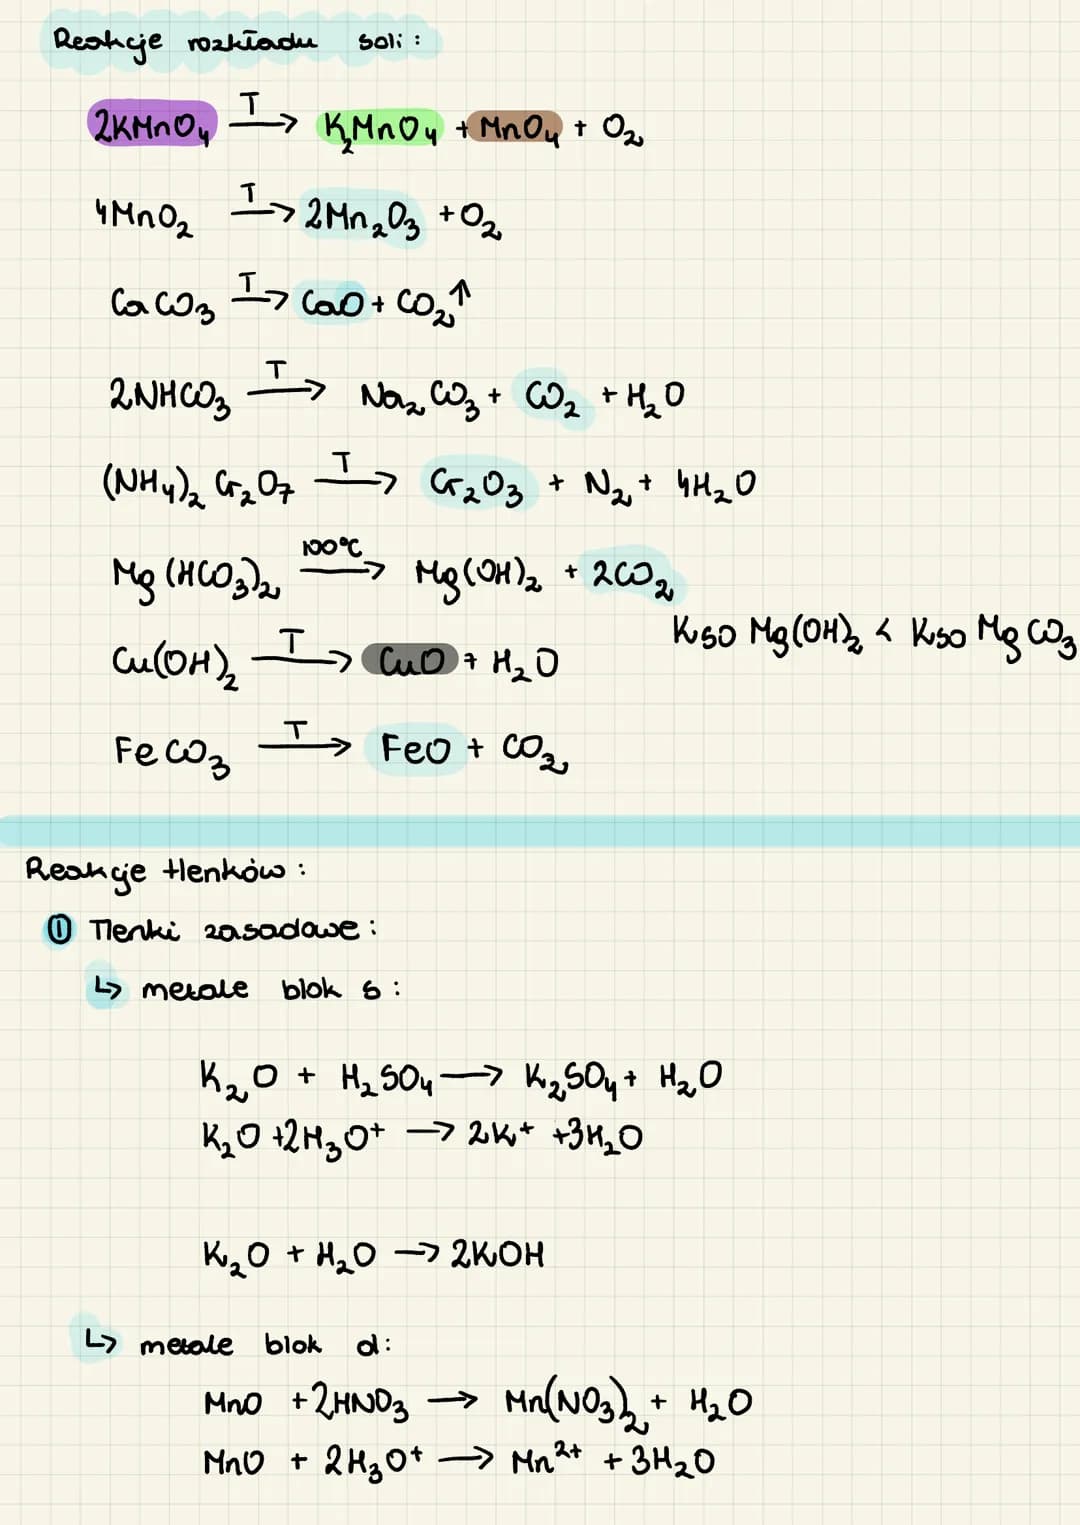 Reakcje rozkładu soli:
2KMnO₄ —T→ K₂MnO₄ + MnO₄ + O₂
4MnO₂ —T→ 2Mn₂O₃ + O₂
CaCO₃ —T→ CaO + CO₂↑
2NHCO₃ —T→ Na₂CO₃ + CO₂ + H₂O
(NH₄)₂Cr₂O₇ —T→ Cr₂O₃ + N₂ + 4H₂O
Mg(HCO₃)₂ —100°C→ Mg(OH)₂ + 2CO₂
Kso Mg(OH)₂ < Kso MgCO₃
Cu(OH)₂ —T→ CuO + H₂O
FeCO₃ —T→ FeO + CO₂
Reakcje tlenków:
① Tlenki zasadowe:
↳ metale blok s:
K₂O + H₂SO₄ → K₂SO₄ + H₂O
K₂O + 2H₃O⁺ → 2K⁺ + 3H₂O
K₂O + H₂O → 2KOH
↳ metale blok d:
MnO + 2HNO₃ → Mn(NO₃)₂ + H₂O
MnO + 2H₃O⁺ → Mn²⁺ + 3H₂O